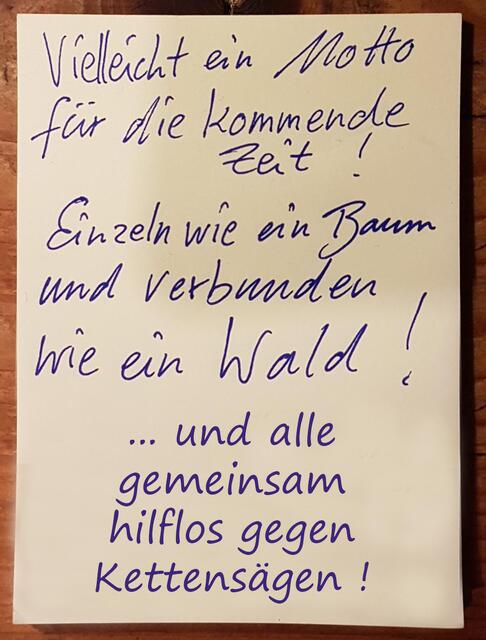 Vielleicht ein Motto
für die kommende
Zeit !
Einzeln wie ein Baum
und verbunden
wie ein Wald !
... und alle
gemeinsam
hilflos gegen
Kettensägen !